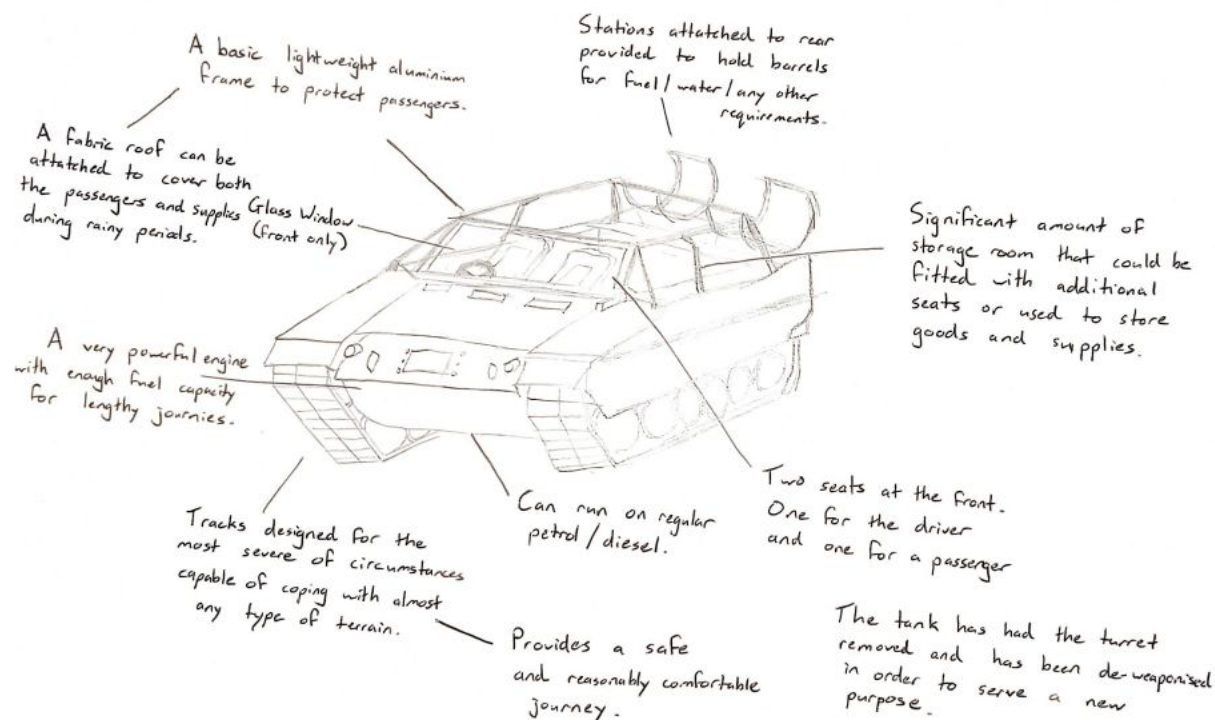 A basic lightweight aluminium
frame to protect passengers.
Stations attatched to rear
provided to hold barrels
for fuel/water/any other
requirements.
A fabric roof can be
attatched to cover both
the passengers and supplies
during rainy periods.
Glass Window
(front only)
Significant amount of
storage room that could be
fitted with additional
seats or used to store
goods and supplies.
A very powerful engine
with enough fuel capacity
for lengthy journies.
Tracks designed for the
most severe of circumstances
capable of coping with almost
any type of terrain.
Can run on regular
petrol/diesel.
Two seats at the front.
One for the driver
and one for a passenger
Provides a safe
and reasonably comfortable
journey.
The tank has had the turret
removed and has been de-weaponised
in order to serve a new
purpose.